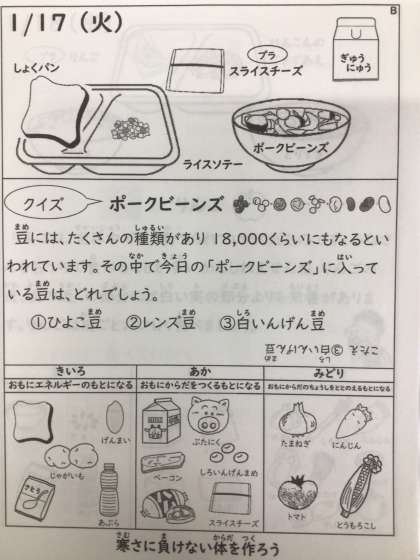 B
1/17（火）
ぎゅうにゅう
しょくパン
プラ
スライスチーズ
ポークビーンズ
ライスソテー
クイズ
ポークビーンズ
豆には、たくさんの種類があり18,000くらいにもなるとい
われています。その中で今日の「ポークビーンズ」に入って
いる豆は、どれでしょう。
①ひよこ豆　②レンズ豆　③白いんげん豆
こたえ ③白いんげん豆
きいろ　あか　みどり
おもにエネルギーのもとになる　おもにからだをつくるもとになる　おもにからだのちょうしをととのえるもとになる
げんまい
じゃがいも
さとう
あぶら
ぶたにく
ベーコン
しろいんげんまめ
スライスチーズ
たまねぎ
にんじん
トマト
とうもろこし
寒さに負けない体を作ろう